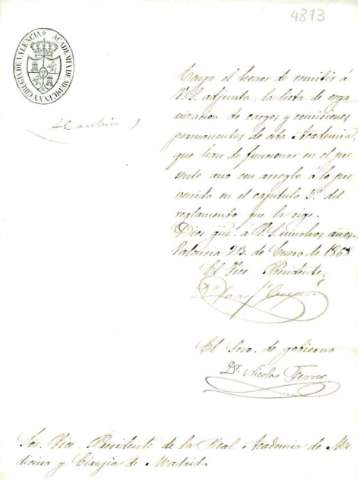 4873
ACADEMIA DE MEDICINA Y CIRUGIA DE VALENCIA
Tengo el honor de remitir á
V.S. adjunta, la lista de orga
nizacion de cargos y comisiones
permanentes de esta Academia,
que han de funcionar en el pre
sente año con arreglo á lo pre
venido en el capitulo 5º del
reglamento que la rige.
Dios gue. á V.S. muchos años.
Valencia 23 de Enero de 1868
El Vice Presidente,
El Srio. de gobierno
Dr. Nicolas Ferrer
Sor. Vice Presidente de la Real Academia de Me
dicina y Cirugia de Madrid.